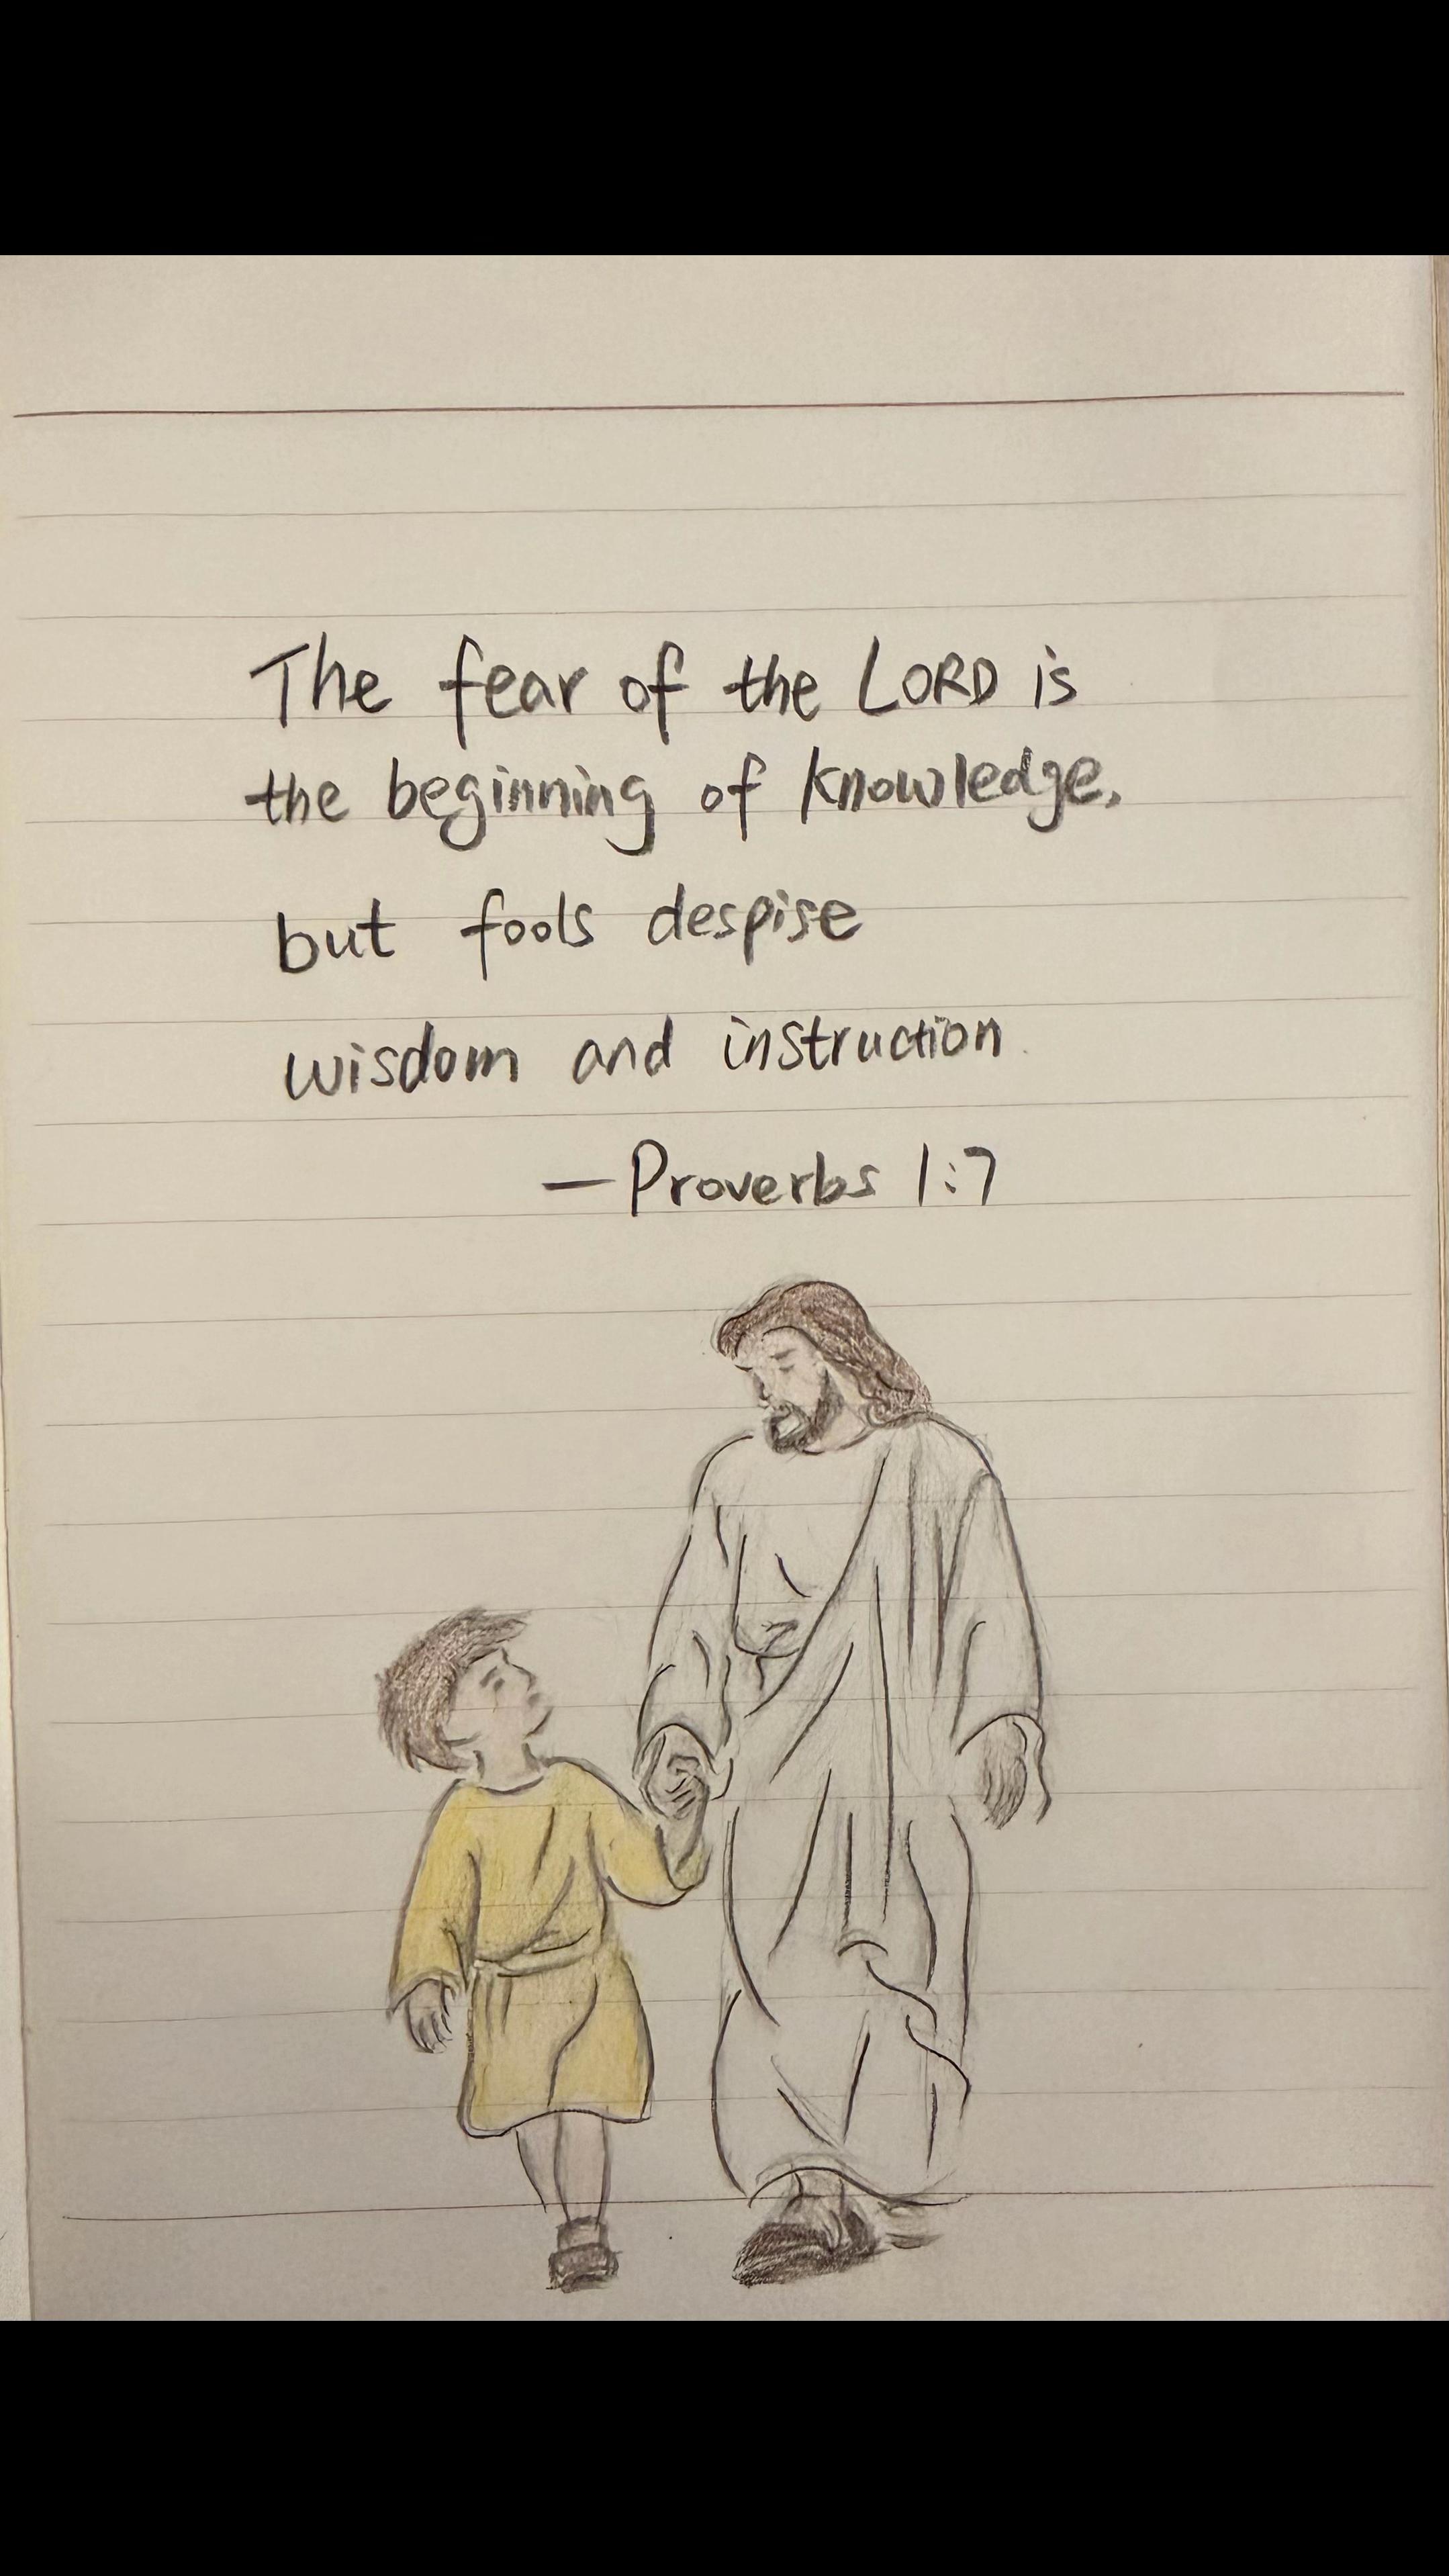 The fear of the LORD is
the beginning of knowledge,
but fools despise
wisdom and instruction.
—Proverbs 1:7